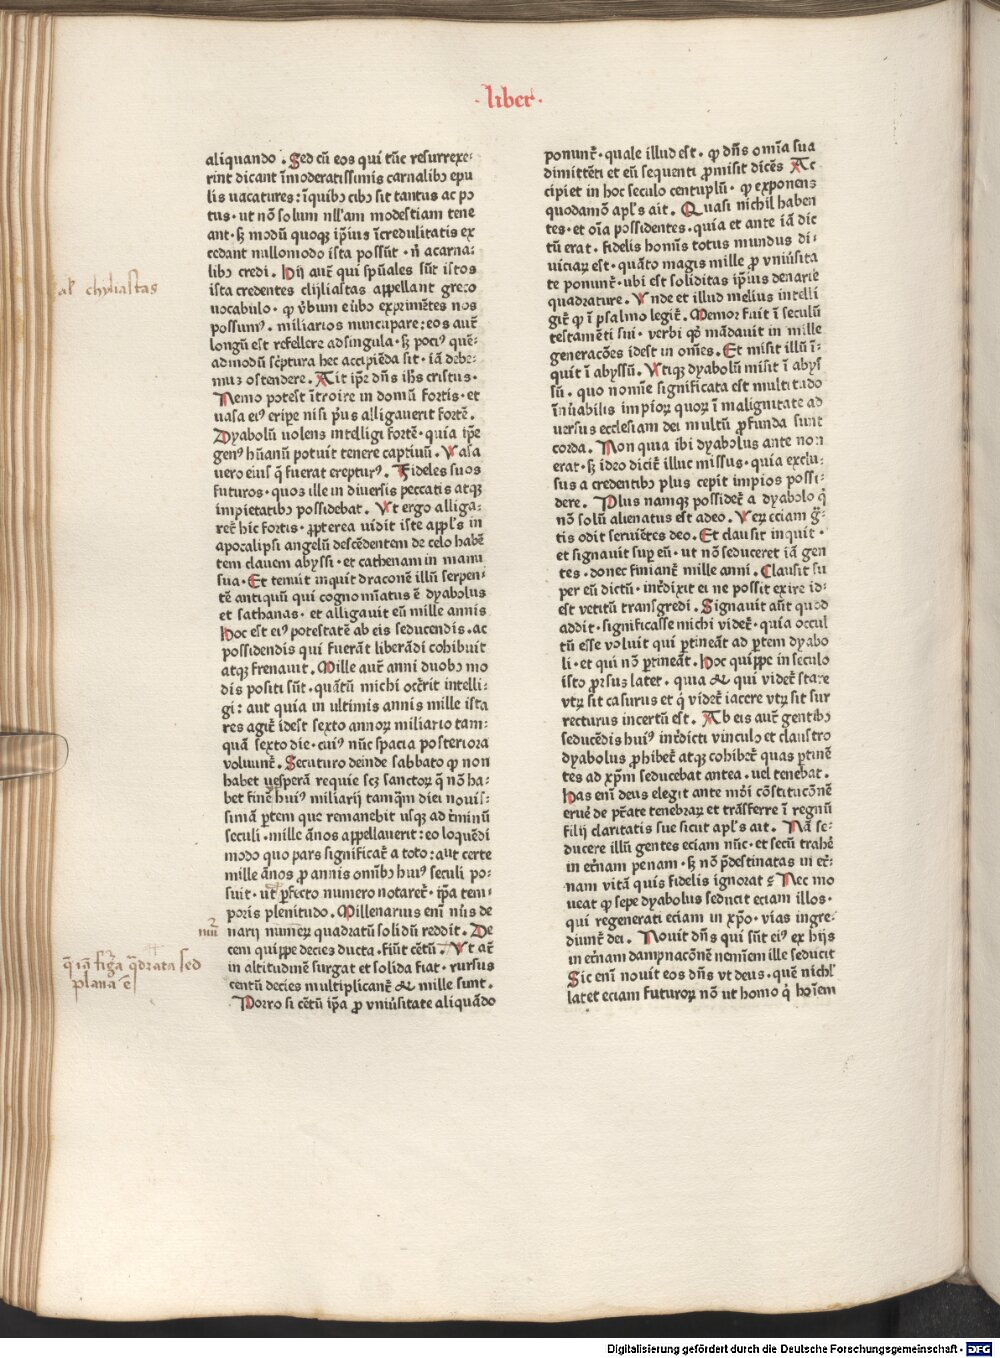 · liber ·
aliquando . Sed cū eos qui tūc resurrexe⸗
rint dicant īmoderatissimis carnalibꝫ epu
lis uacatures : īquibꝫ cibꝫ sit tantus ac po
tus · ut nō solum nll'am modestiam tene
ant · sꝫ modū quoqꝫ ip̄ius īcredulitatis ex
cedant nullomodo ista possūt · n̄ acarna⸗
libꝫ credi . hij aut̄ qui sp̄uales sūt istos
ista credentes chijliastas appellant greco
uocabulo · ꝙ v̄bum e ūbo exprimētes nos
possumꝰ . miliarios nuncupare : eos aut̄
longū est refellere adsingula · sꝫ pociꝰ quē⸗
admodū sc̄ptura hec accipiēda sit · iā debe⸗
mus ostendere . Ait ip̄e dn̄s ih̄s cristus ·
Nemo potest ītroire in domū fortis · et
uasa eiꝰ eripe nisi p̄us alligauerit fortē .
Dyabolū uolens intelligi fortē · quia ip̄e
genꝰ hūanū potuit tenere captiuū . Vasa
uero eius q̄ fuerat erepturꝰ . Fideles suos
futuros · quos ille in diuersis peccatis atqꝫ
impietatibꝫ possidebat . Vt ergo alliga⸗
ret̄ hic fortis · ꝓpterea uidit iste appl's in
apocalipsi angelū descēdentem de celo habē
tem clauem abyssi · et cathenam in manu
sua · Et tenuit inquit draconē illū serpen⸗
tē antiquū qui cognom̄atus ē dyabolus
et sathanas · et alligauit eū mille annis
hoc est eiꝰ potestatē ab eis seducendis . ac
possidendis qui fuerāt liberādi cohibuit
atqꝫ frenauit . Mille aut̄ anni duobꝫ mo
dis positi sūt · quātū michi occ̄rit intelli⸗
gi : aut quia in ultimis annis mille ista
res agit̄ idest sexto annoꝝ miliario tam⸗
quā sexto die · cuiꝰ nūc spacia posteriora
voluunt̄ . Secuturo deinde sabbato ꝙ non
habet uesperā requie scꝫ sanctoꝝ q̄ nō ha⸗
bet finē huiꝰ miliarij tamq̄m diei nouis⸗
simā p̄tem que remanebit usqꝫ ad t̄minū
seculi · mille ānos appellauerit : eo loquēdi
modo quo pars significat̄ a toto : aut certe
mille ānos ꝓ annis omībꝫ huiꝰ seculi po⸗
suit · ut p̄fecto numero notaret̄ · ip̄a tem⸗
poris plenitudo . Millenarius enī nu̅s de
narij numeꝝ quadratū solidū reddit . De
cem quippe decies ducta · fiūt cētū . Vt at̄
in altitudinē surgat et solida fiat · rursus
centū decies multiplicant̄ ⁊ mille sunt .
Porro si cētū ip̄a ꝓ vniūsitate aliquādo
al' chyliastas
q̄ iā fig̃a q̄drata sed
plana ē
ponunt̄ · quale illud est · ꝙ dn̄s omīa sua
dimittēti et eū sequenti ꝓmisit dicēs Ac
cipiet in hoc seculo centuplū · ꝙ exponens
quodamō apl's ait . Quasi nichil haben
tes · et oīa possidentes · quia et ante iā dic
tū erat . fidelis homīs totus mundus di⸗
uiciaꝝ est · quāto magis mille ꝓ vniūsita
te ponunt̄ · ubi est soliditas ip̄ius denarie
quadrature . Vnde et illud melius intelli
git̄ ꝙ ī psalmo legit̄ . Memor fuit ī seculū
testamēti sui · verbi qd̄ mādauit in mille
generacōes idest in om̄es . Et misit illū ī⸗
quit ī abyssū . Vtiqꝫ dyabolū misit ī abys
sū . quo nomīe significata est multitudo
īnūabilis impioꝝ quoꝝ ī malignitate ad
uersus ecclesiam dei multū ꝓfunda sunt
corda . Non quia ibi dyabolus ante non
erat · sꝫ ideo dicit̄ illuc missus · quia exclu⸗
sus a credentibꝫ plus cepit impios possi⸗
dere . Plus namqꝫ possidet̄ a dyabolo q̇
nō solū alienatus est adeo . Veꝝ eciam g̃⸗
tis odit seruiētes deo . Et clausit inquit ·
et signauit suꝑ eū · ut nō seduceret iā gen
tes · donec finiant̄ mille anni . Clausit su
per eū dictū · int̄dixit ei ne possit exire id⸗
est vetitū transgredi . Signauit aūt quod
addit · significasse michi videt̄ · quia occul
tū esse voluit qui ꝑtineāt ad ꝑtem dyabo
li · et qui nō ꝑtineāt . hoc quippe in seculo
isto ꝓrsus latet . quia ⁊ qui videt̄ stare
vtꝝ sit casurus et q̇ videt̄ iacere vtꝝ sit sur
recturus incertū est . Ab eis aut̄ gentibꝫ
seducēdis huiꝰ int̄dicti vinculo et claustro
dyabolus ꝓhibet̄ atqꝫ cohibet̄ quas ꝑtinē
tes ad xp̄m seducebat antea · uel tenebat .
has enī deus elegit ante mōi cōstitucōnē
erue̅ de ptāte tenebraꝝ et trāsferre ī regnū
filij claritatis sue sicut apl's ait . Nā se⸗
ducere illū gentes eciam nūc · et secū trahe̅
in et̄nam penam · sꝫ nō p̄destinatas in et̄⸗
nam vitā quis fidelis ignorat ? Nec mo
ueat ꝙ sepe dyabolus seducit eciam illos ·
qui regenerati eciam in xp̄o · vias ingre⸗
diunt̄ dei . Nouit dn̄s qui sūt eiꝰ ex hijs
in et̄nam dampnacōnē nemīem ille seducit
Sic enī nouit eos dn̄s vt deus · quē nichl'
latet eciam futuroꝝ nō ut homo q̇ hoīem
Digitalisierung gefördert durch die Deutsche Forschungsgemeinschaft - DFG